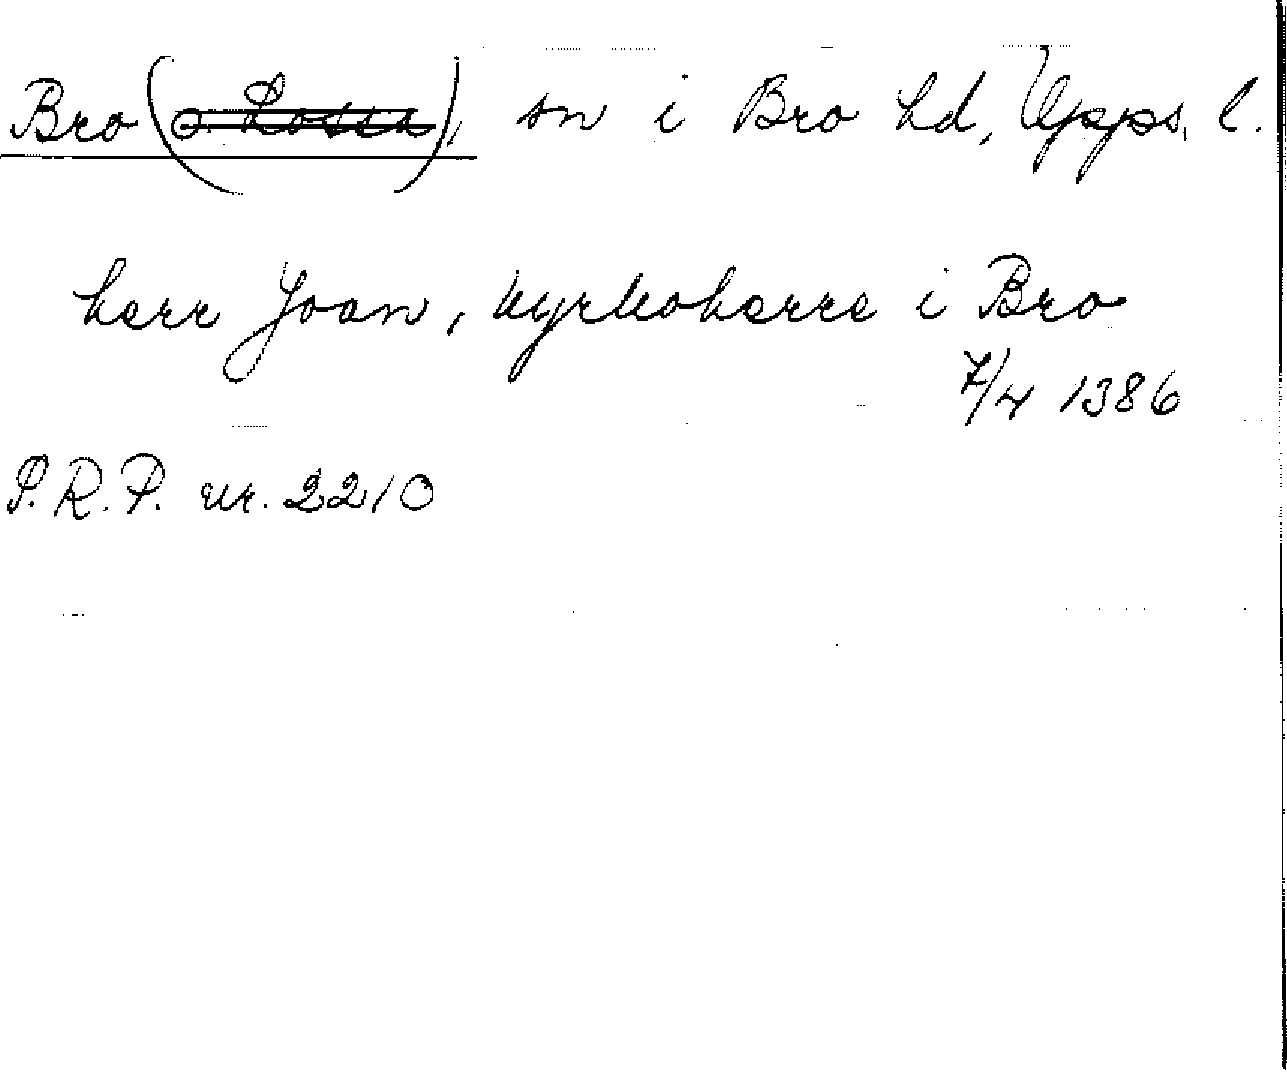 Bro (o. Lossa), sn i Bro hd, Upps. l.
herr Joan, kyrkoherre i Bro
7/4 1386
S.R.P. nr. 2210